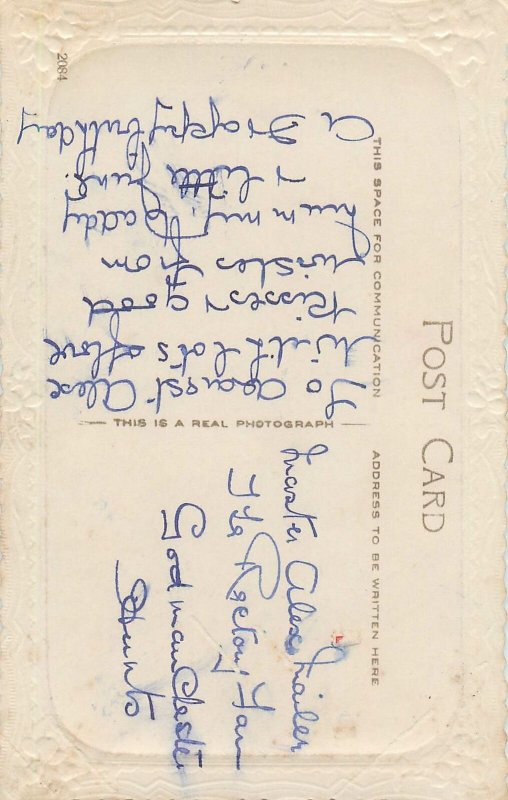 2084
POST CARD
THIS SPACE FOR COMMUNICATION
ADDRESS TO BE WRITTEN HERE
THIS IS A REAL PHOTOGRAPH
To dearest Alexe
With lots of love
Kisses & good
wishes from
Mummy Daddy
& little June.
A Happy birthday
Master Alexe
The Rectory Farm
Godmanchester
Hunts